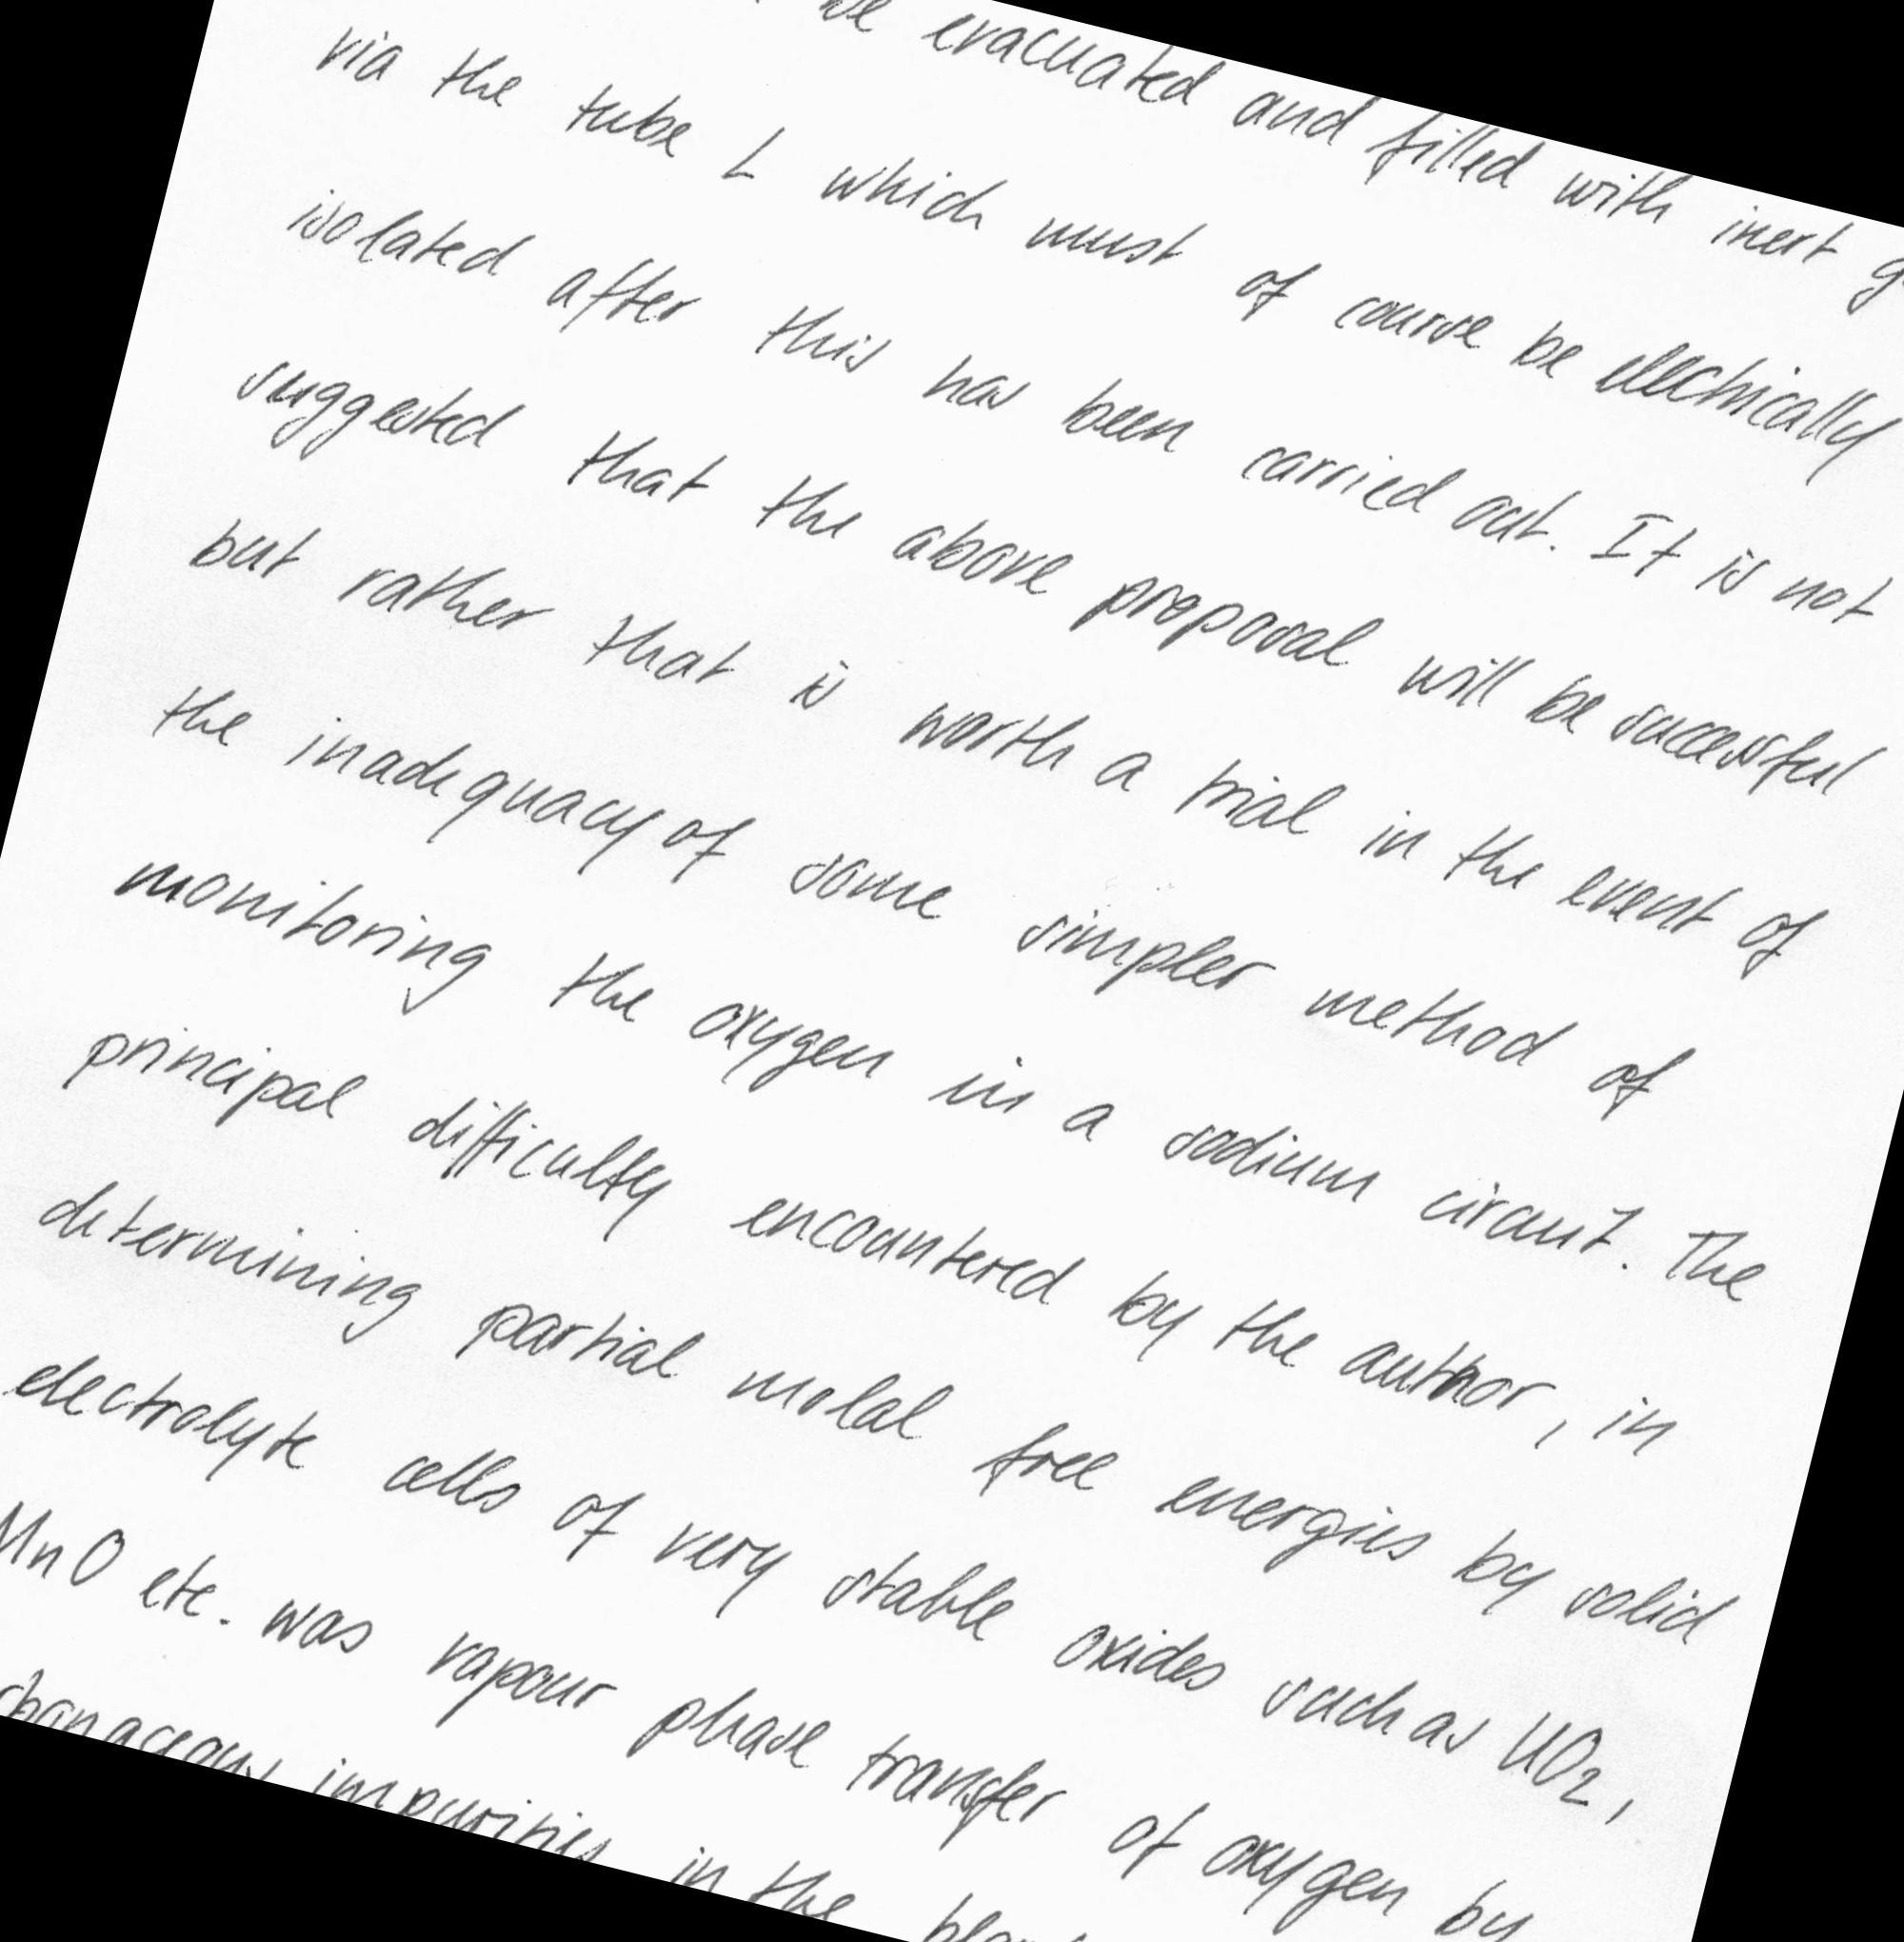 be evacuated and filled with inert
via the tube L which must of course be electrically
isolated after this has been carried out. It is not
suggested that the above proposal will be successful
but rather that is worth a trial in the event of
the inadequacy of some simpler method of
monitoring the oxygen in a sodium circuit. The
principal difficulty encountered by the author, in
determining partial molal free energies by solid
electrolyte cells of very stable oxides such as UO2,
MnO etc. was vapour phase transfer of oxygen by
impurities in the